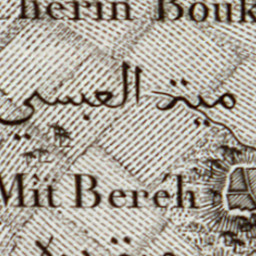 herin Bouk
ميتة العبسي
Mit Beréh